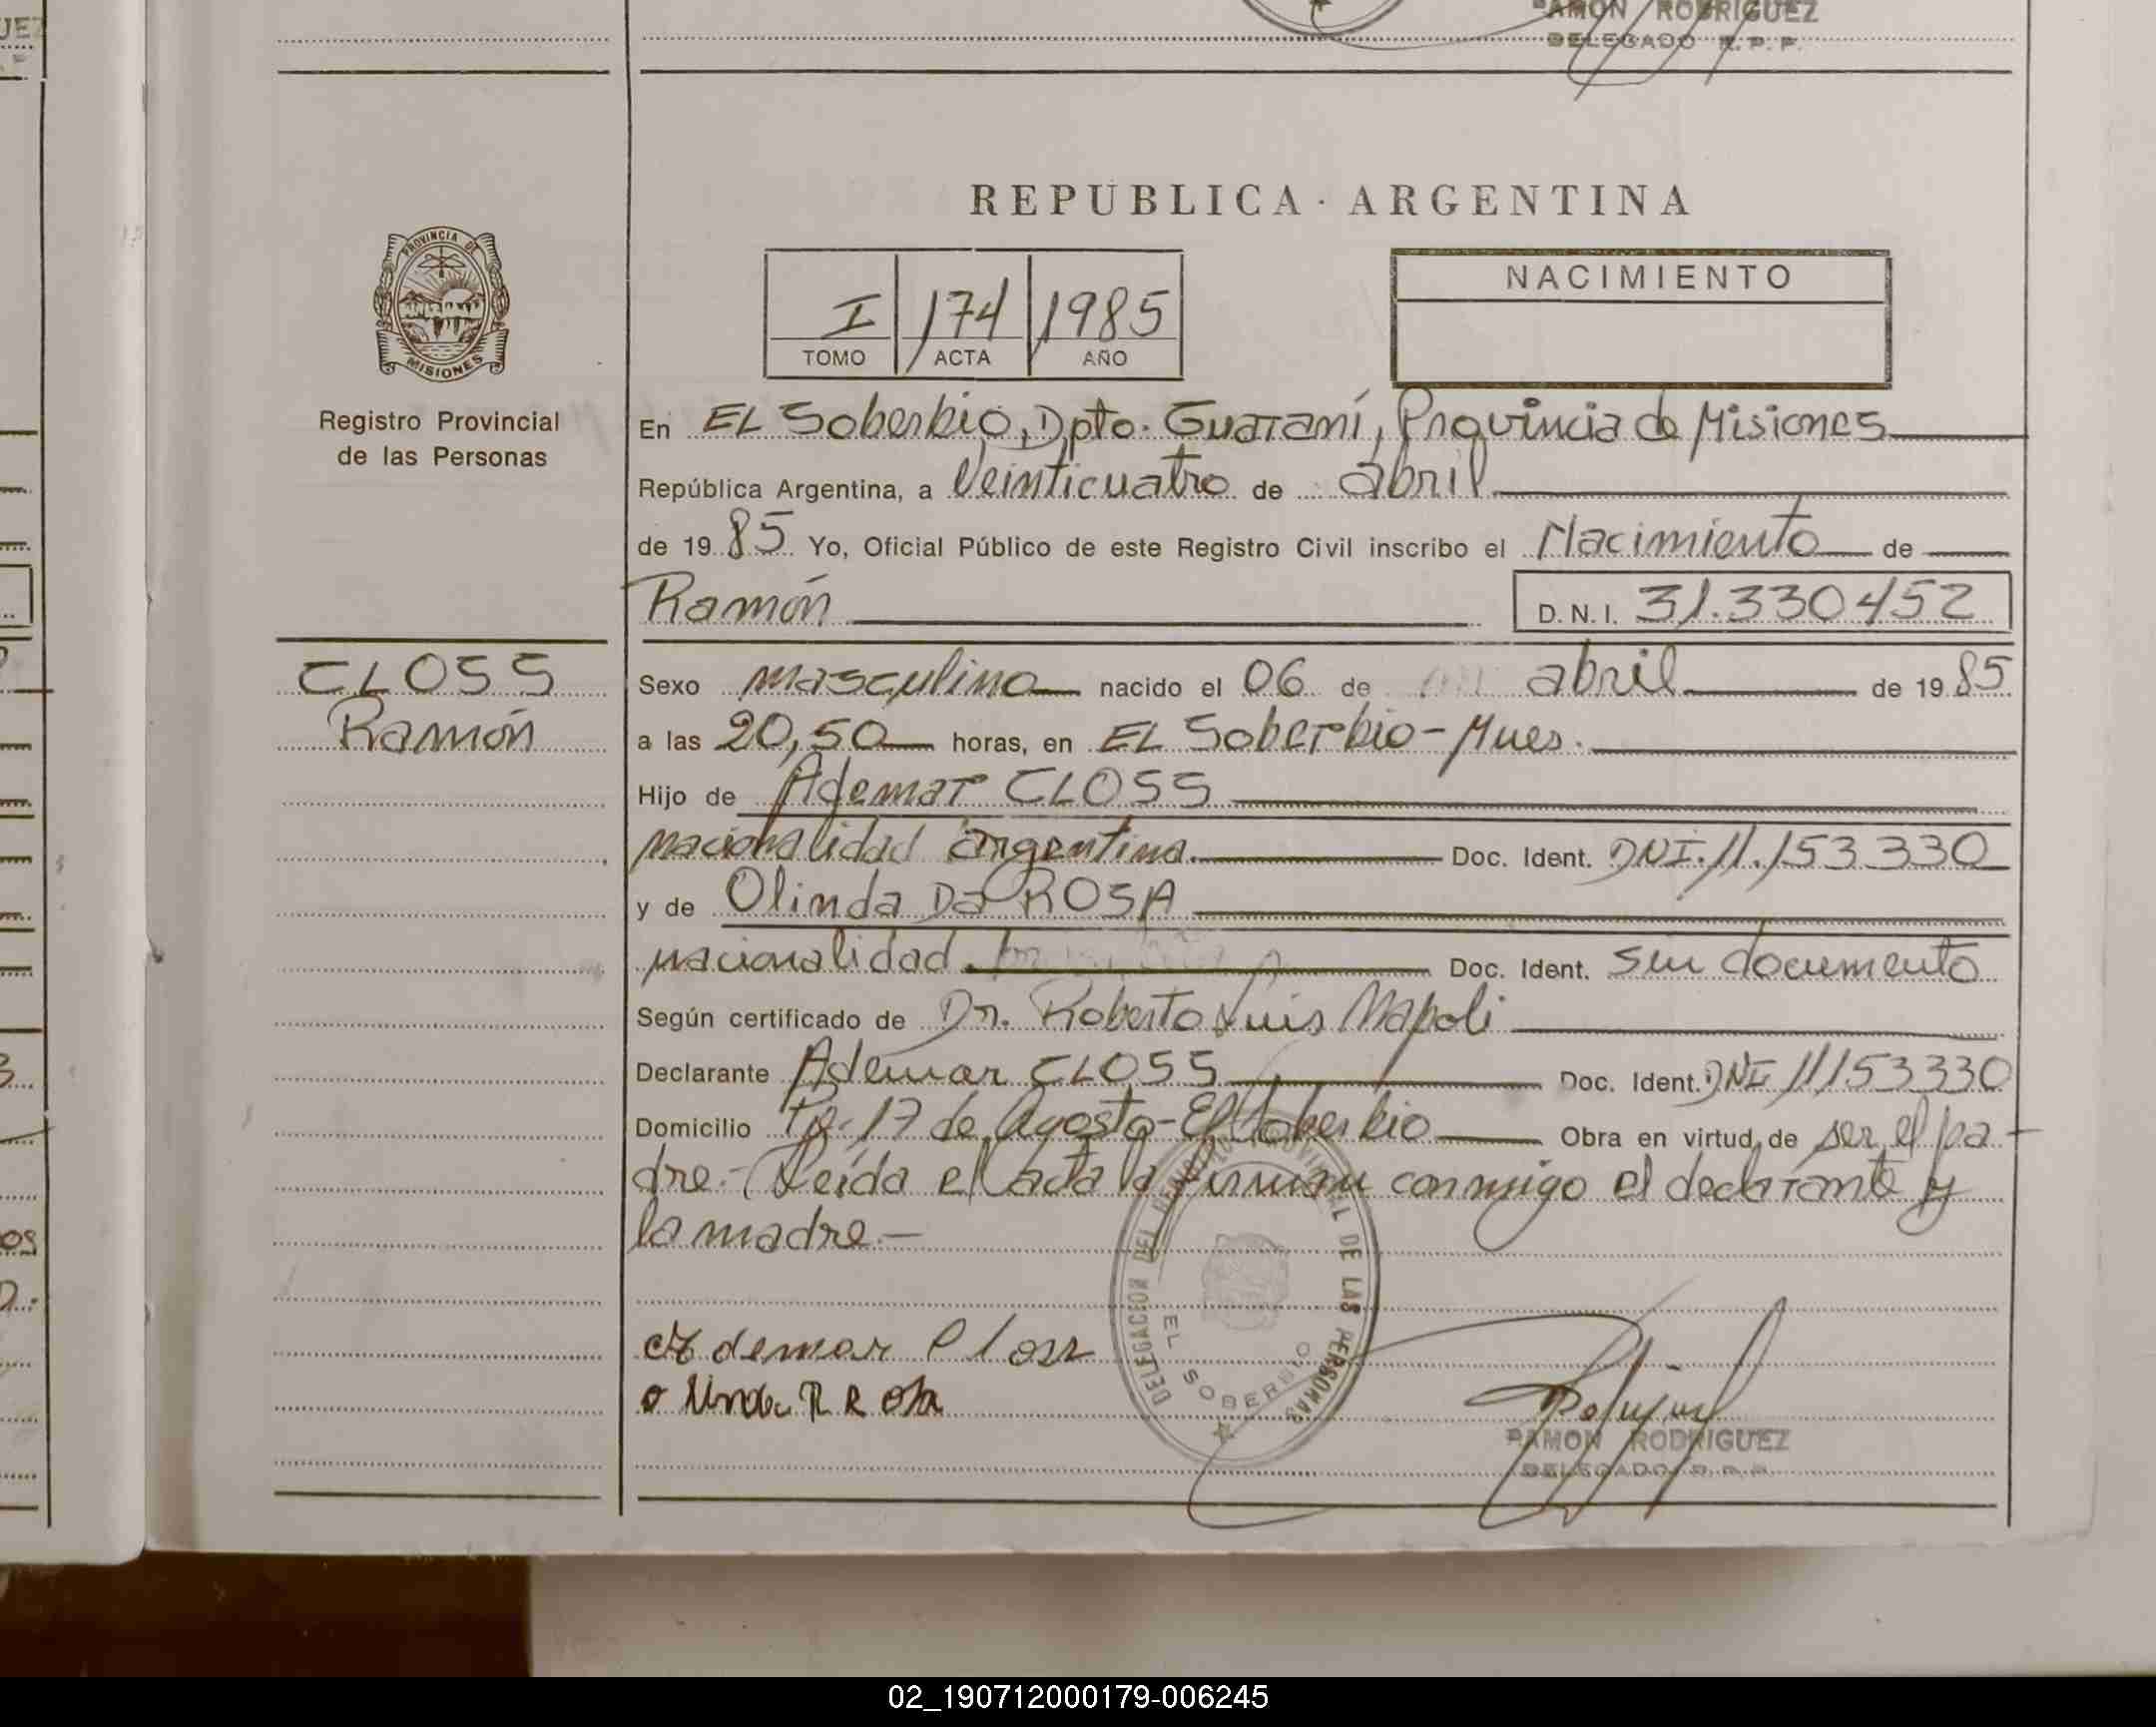 RAMON RODRIGUEZ
DELEGADO R. P. P.
REPUBLICA · ARGENTINA
PROVINCIA DE
MISIONES
Registro Provincial
de las Personas
I 174 1985
TOMO ACTA AÑO
NACIMIENTO
En EL Soberbio, Dpto. Guaraní, Provincia de Misiones
República Argentina, a Veinticuatro de abril
de 19 85 Yo, Oficial Público de este Registro Civil inscribo el Nacimiento de
Ramón D.N.I. 31.330452
CLOSS
Ramón
Sexo masculino nacido el 06 de abril de 19 85
a las 20,50 horas, en EL Soberbio-Mnes.
Hijo de Ademar CLOSS
nacionalidad argentina. Doc. Ident. DNI. 11.153330
y de Olinda Da ROSA
nacionalidad Doc. Ident. sin documento
Según certificado de Dr. Roberto Luis Napoli
Declarante Ademar CLOSS Doc. Ident. DNI 11153330
Domicilio 17 de Agosto-El Soberbio Obra en virtud de ser el pa-
dre.- Leída el acta la firman conmigo el declarante y
la madre.-
DELEGACION DEL REGISTRO PROVINCIAL DE LAS PERSONAS
EL SOBERBIO
Ademar Closs
RAMON RODRIGUEZ
DELEGADO R. P. P.
02_190712000179-006245